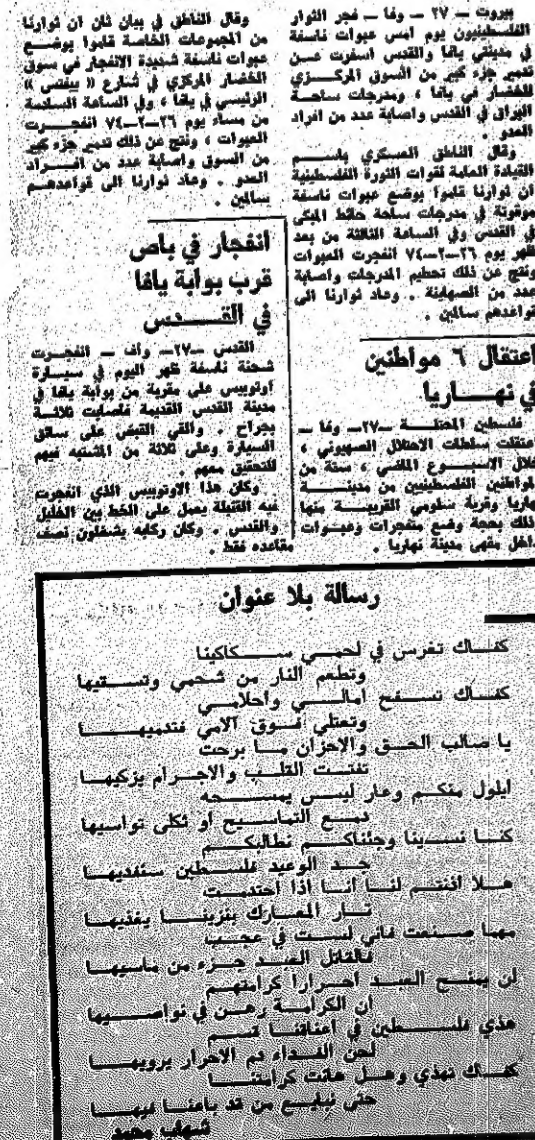 بيروت — ٢٧ — وفا — فجر الثوار
الفلسطينيون يوم امس عبوات ناسفة
في مدينتي يافا والقدس اسفرت عـــن
تدمير جزء كبير من السوق المركـــزي
للخضار في يافا ، ومدرجات ساحـــة
البراق في القدس واصابة عدد من افراد
العدو .
وقال الناطق العسكري باســـم
القيادة العامة لقوات الثورة الفلسطينية
ان ثوارنا قاموا بوضع عبوات ناسفة
موقوتة في مدرجات ساحة حائط المبكى
في القدس وفي الساعة الثالثة من بعد
ظهر يوم ٢٦–٢–٧٤ انفجرت العبوات
ونتج عن ذلك تحطيم المدرجات واصابة
عدد من الصهاينة . وعاد ثوارنا الى
قواعدهم سالمين .
اعتقال ٦ مواطنين
في نهـــاريا
فلسطين المحتلـــة —٢٧— وفا —
اعتقلت سلطات الاحتلال الصهيوني ،
خلال الاســـبوع الماضي ، ستة من
المواطنين الفلسطينيين من مدينـــة
نهاريا وقرية القريبـــة منها
وذلك بحجة وضع متفجرات وعبـــوات
داخل مقهى مدينة نهاريا .
وقال الناطق في بيان ثان ان ثوارنا
من المجموعات الخاصة قاموا بوضـــع
عبوات ناسفة شديدة الانفجار في سوق
الخضار المركزي في شارع « »
الرئيسي في يافا ، وفي الساعة السادسة
من مساء يوم ٢٦–٢–٧٤ انفجـــرت
العبوات ، ونتج عن ذلك تدمير جزء كبير
من السوق واصابة عدد من افـــراد
العدو . وعاد ثوارنا الى قواعدهـــم
سالمين .
انفجار في باص
قرب بوابة يافا
في القـــدس
القدس —٢٧— واف — انفجـــرت
شحنة ناسفة ظهر اليوم في ســـيارة
اوتوبيس على مقربة من بوابة يافا في
مدينة القدس القديمة فاصابت ثلاثـــة
بجراح . والقي القبض على سائق
السيارة وعلى ثلاثة من المشتبه فيهم
للتحقيق معهم .
وكان هذا الاوتوبيس الذي انفجرت
فيه القنبلة يعمل على الخط بين الخليل
والقدس . وكان ركابه يشغلون نصف
مقاعده فقط .
رسالة بلا عنوان
كفـــاك تغرس في لحمـــي ســـكاكينا
وتطعم النار من شحمي وتســـتقيها
كفـــاك تســـفح امالـــي واحلامـــي
وتعتلي فـــوق آلامي فتدميهـــا
يا صالب الحـــق والاحزان مـــا برحت
تفتـــت القلـــب والاجـــرام يزكيهـــا
ايلول منكـــم وعار ليـــس يمســـحه
دمـــع التماســـيح او ثكلى تواسيها
كنـــا نســـينا وجئناكـــم نطالبكـــم
حـــد الوعيد فلســـطين سنفديهـــا
هـــلا اذنتـــم لنـــا انـــا اذا احتدمـــت
نـــار المعـــارك بنزينـــا يغذيهـــا
مهما صـــنعت فاني لســـت في عجـــب
فالقاتل العبـــد جـــزء من ماسيهـــا
لن يمنـــح العبـــد احـــرارا كرامتهـــم
ان الكرامـــة رهـــن في نواصـــيها
هذي فلســـطين في اعناقنـــا قســـم
لحن الفـــداء دم الاحرار يرويهـــا
كفـــاك تهذي وهـــل هانت كرامتنـــا
حتى نبايـــع من قد باعنـــا فيهـــا
شهاب محمد